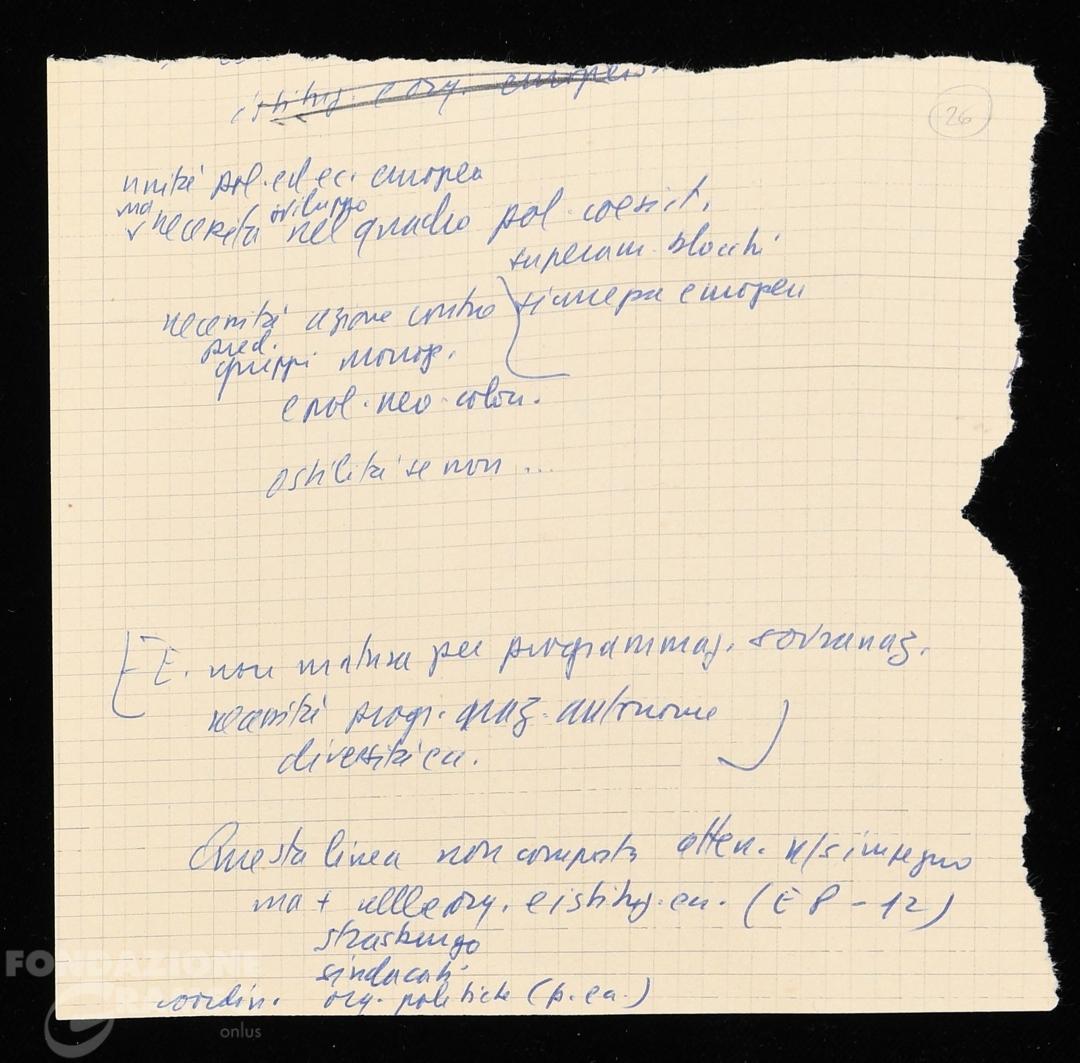 istituz. e org. europeis
26
unità pol. ed ec. europea
ma necessità sviluppo nel quadro pol. coesist.
superam. blocchi
necessità azione contro
sicurezza europea
pred.
gruppi monop.
e pol. neo-colon.
ostilità se non ...
E. non matura per programmaz. sovranaz.
necessità progr. naz. autonome
diversità ec.
Questa linea non comporta atten. n/s impegno
ma + nelle org. e istituz. eu. (E P - 12)
strasburgo
sindacati
coordin. org. politiche (p. ea.)
FONDAZIONE
CRAXI
onlus